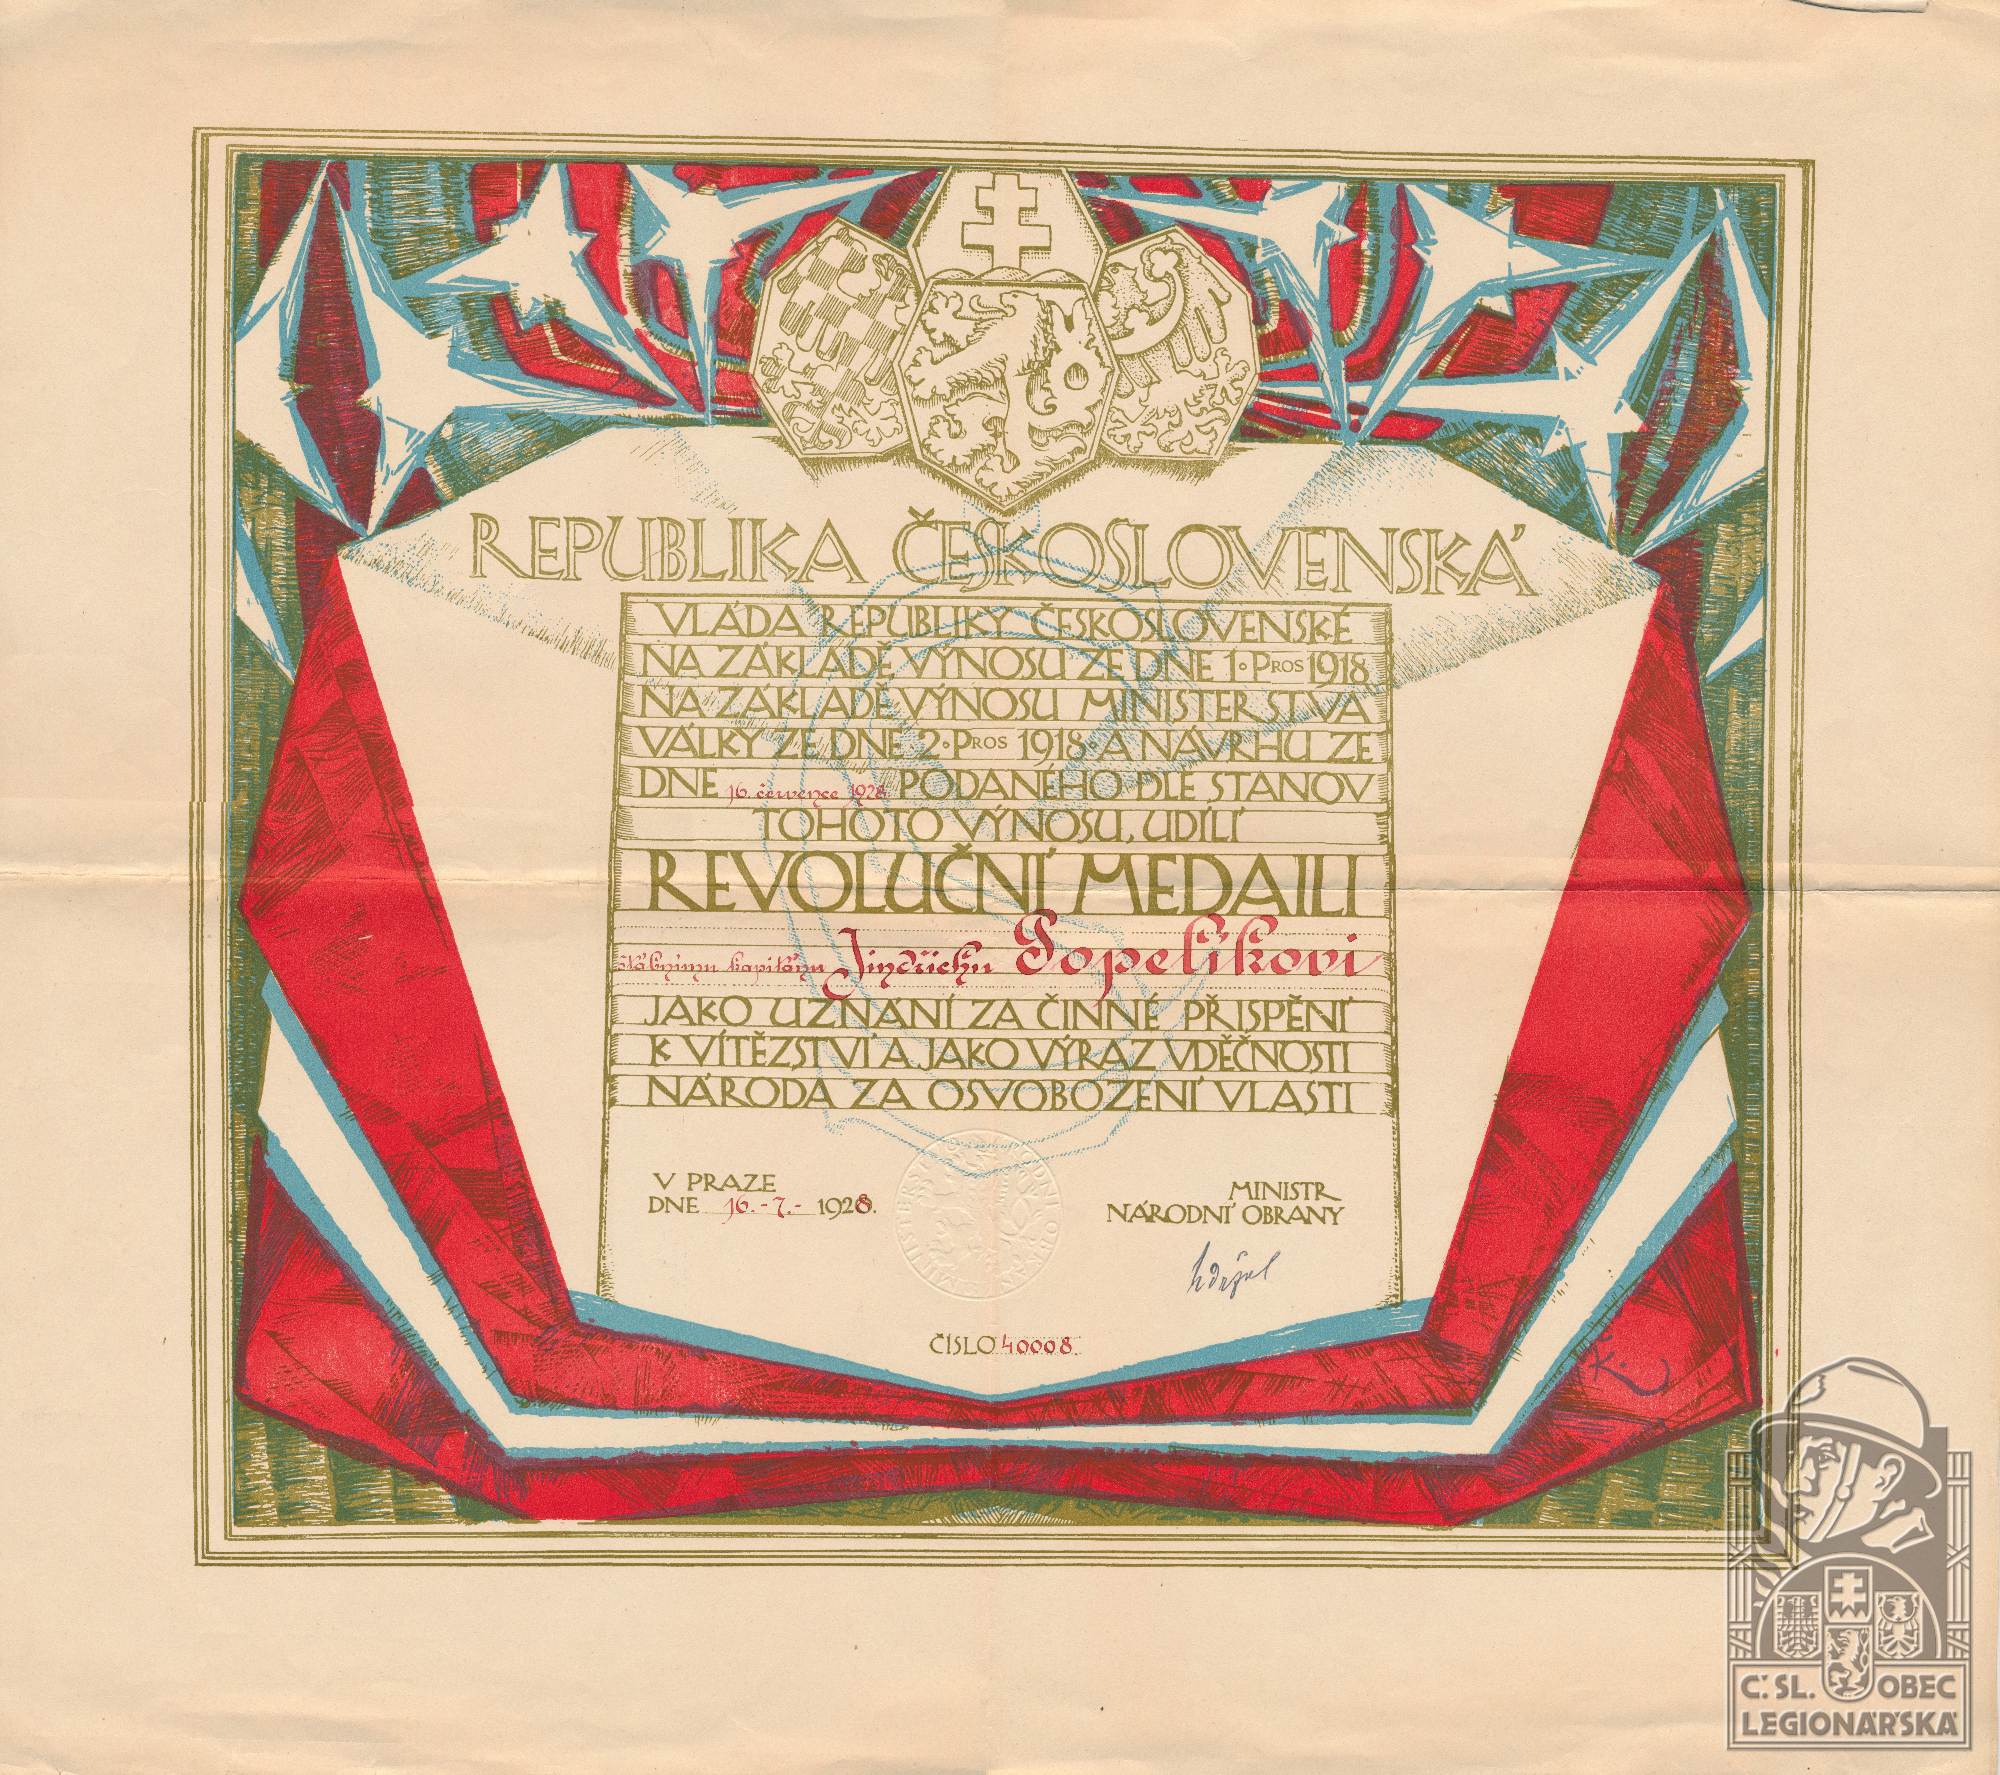 REPUBLIKA ČESKOSLOVENSKÁ
VLÁDA REPUBLIKY ČESKOSLOVENSKÉ
NA ZÁKLADĚ VÝNOSU ZE DNE 1. PROS 1918
NA ZÁKLADĚ VÝNOSU MINISTERSTVA
VÁLKY ZE DNE 2. PROS 1918. A NÁVRHU ZE
DNE 16. července 1928 PODANÉHO DLE STANOV
TOHOTO VÝNOSU, UDÍLÍ
REVOLUČNÍ MEDAILI
štábnímu kapitánu Jindřichu Popelíkovi
JAKO UZNÁNÍ ZA ČINNÉ PŘISPĚNÍ
K VÍTĚZSTVÍ A JAKO VÝRAZ VDĚČNOSTI
NÁRODA ZA OSVOBOZENÍ VLASTI
V PRAZE
DNE 16.-7.- 1928.
MINISTR
NÁRODNÍ OBRANY
Udržal
ČÍSLO 40008.
Č. SL. OBEC
LEGIONÁŘSKÁ